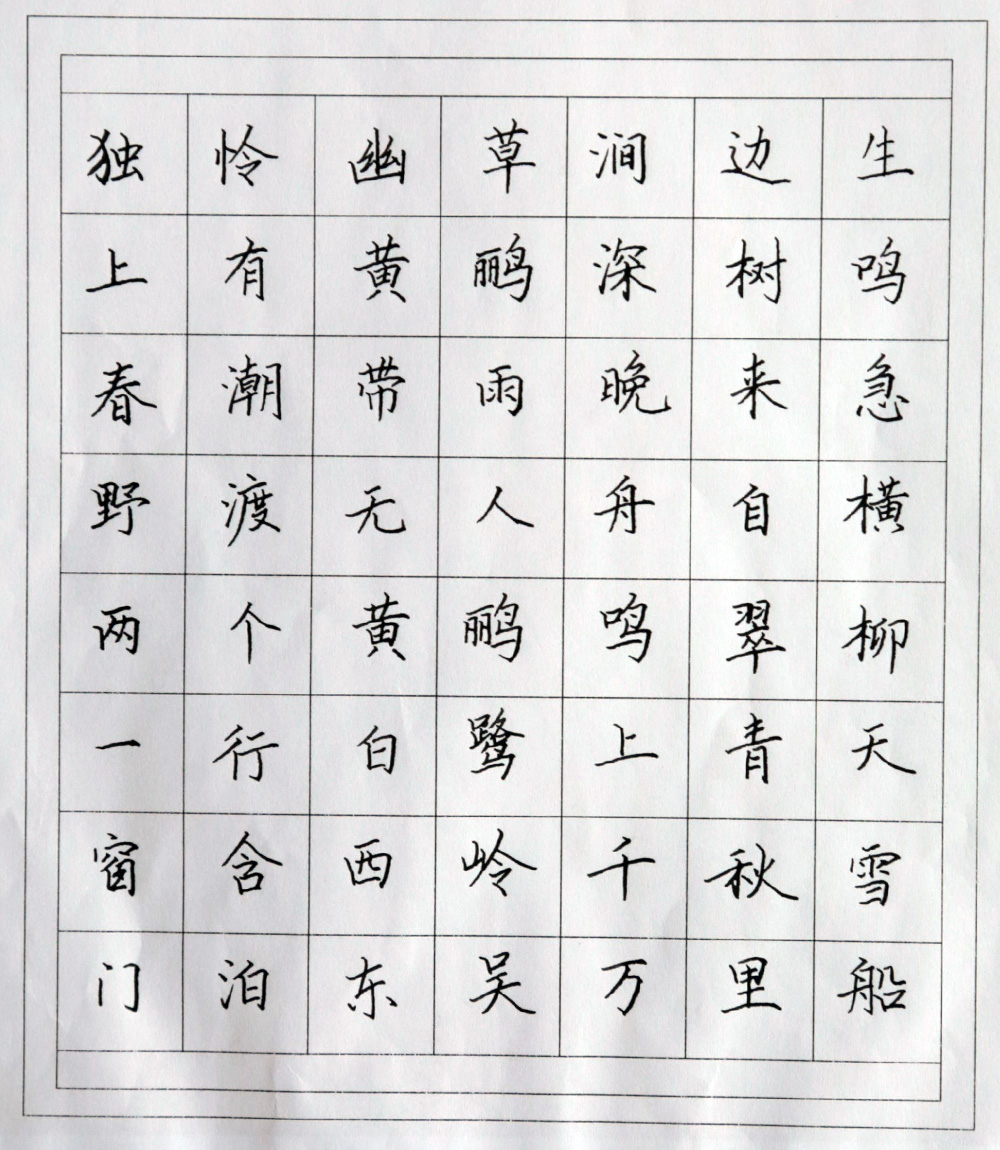 独怜幽草涧边生
上有黄鹂深树鸣
春潮带雨晚来急
野渡无人舟自横
两个黄鹂鸣翠柳
一行白鹭上青天
窗含西岭千秋雪
门泊东吴万里船